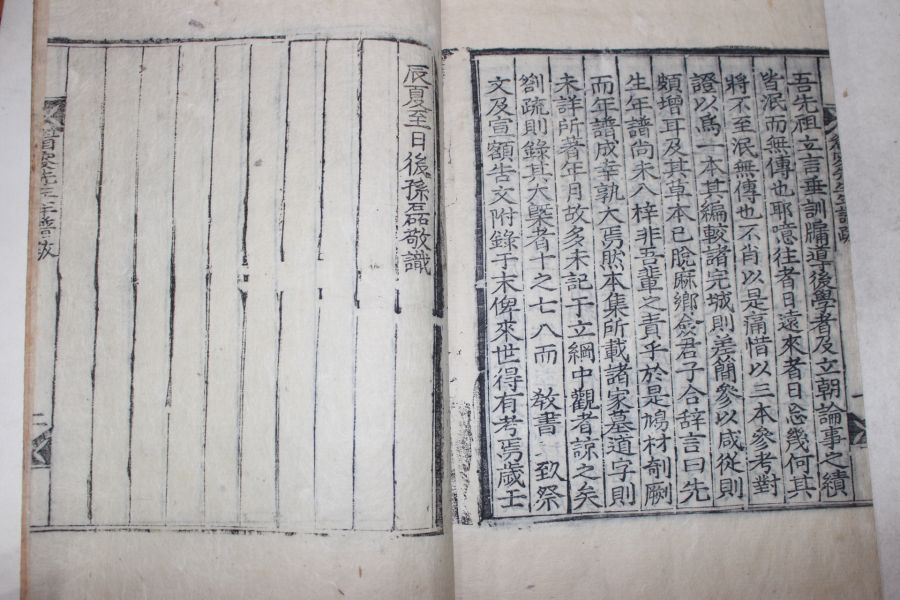 吾先祖立言垂訓牖道後學者及立朝論事之績
皆泯而無傳也耶噫往者日遠來者日忘幾何其
將不至泯無傳也不肖以是痛惜以三本參考對
證以爲一本其編較諸完城則差簡參以咸從則
頗增耳及其草本已脫麻鄉僉君子合辞言曰先
生年譜尚未入梓非吾輩之責乎於是鳩材剞劂
而年譜成幸孰大焉然本集所載諸家墓道字則
未詳所著年月故多未記于立綱中觀者諒之矣
劄疏則錄其大槩者十之七八而 敎書 致祭
文及宣額告文附錄于末俾來世得有考焉歲壬
辰夏至日後孫磊敬識
先生年譜跋
二